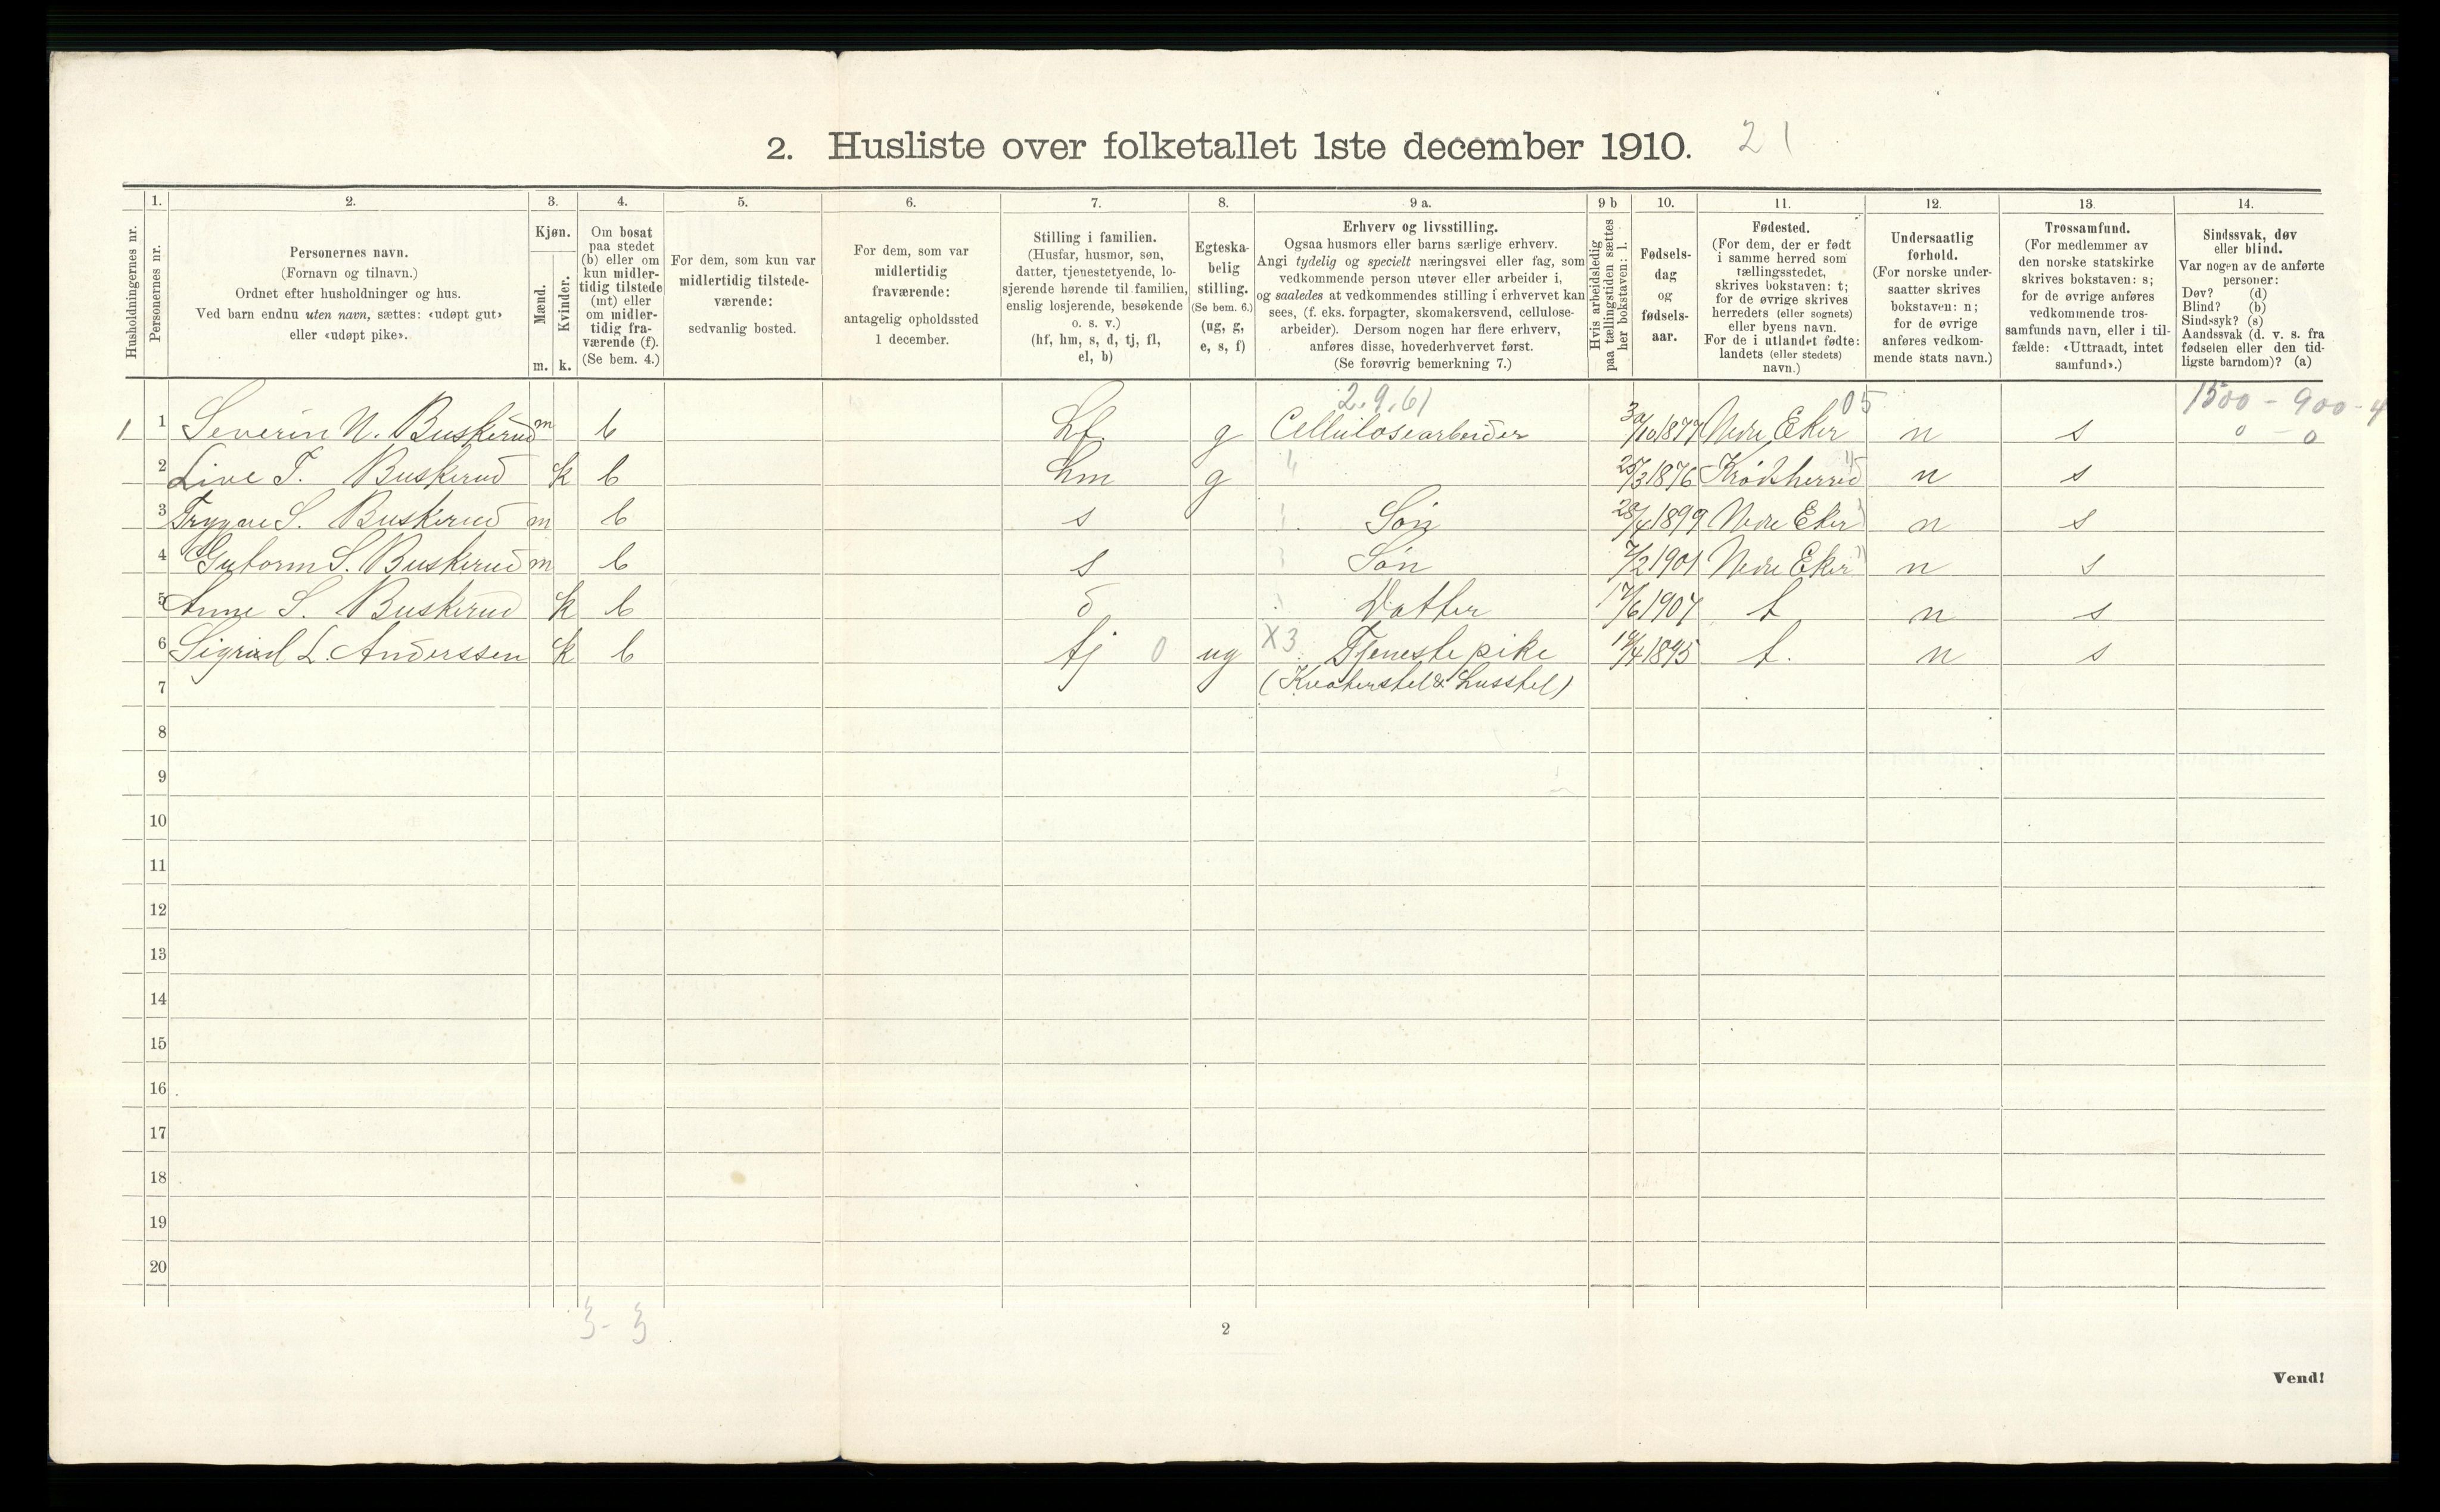 2. Husliste over folketallet 1ste december 1910. 21
Husholdningernes nr.
1. Personernes nr.
2. Personernes navn.
(Fornavn og tilnavn.)
Ordnet efter husholdninger og hus.
Ved barn endnu uten navn, sættes: «udøpt gut»
eller «udøpt pike».
3. Kjøn.
Mænd. m.
Kvinder. k.
4. Om bosat
paa stedet
(b) eller om
kun midler-
tidig tilstede
(mt) eller
om midler-
tidig fra-
værende (f).
(Se bem. 4.)
5. For dem, som kun var
midlertidig tilstede-
værende:
sedvanlig bosted.
6. For dem, som var
midlertidig
fraværende:
antagelig opholdssted
1 december.
7. Stilling i familien.
(Husfar, husmor, søn,
datter, tjenestetyende, lo-
sjerende hørende til familien,
enslig losjerende, besøkende
o. s. v.)
(hf, hm, s, d, tj, fl,
el, b)
8. Egteska-
belig
stilling.
(Se bem. 6.)
(ug, g,
e, s, f)
9 a. Erhverv og livsstilling.
Ogsaa husmors eller barns særlige erhverv.
Angi tydelig og specielt næringsvei eller fag, som
vedkommende person utøver eller arbeider i,
og saaledes at vedkommendes stilling i erhvervet kan
sees, (f. eks. forpagter, skomakersvend, cellulose-
arbeider). Dersom nogen har flere erhverv,
anføres disse, hovederhvervet først.
(Se forøvrig bemerkning 7.)
9 b Hvis arbeidsledig
paa tællingstiden sættes
her bokstaven: l.
10. Fødsels-
dag
og
fødsels-
aar.
11. Fødested.
(For dem, der er født
i samme herred som
tællingsstedet,
skrives bokstaven: t;
for de øvrige skrives
herredets (eller sognets)
eller byens navn.
For de i utlandet fødte:
landets (eller stedets)
navn.)
12. Undersaatlig
forhold.
(For norske under-
saatter skrives
bokstaven: n;
for de øvrige
anføres vedkom-
mende stats navn.)
13. Trossamfund.
(For medlemmer av
den norske statskirke
skrives bokstaven: s;
for de øvrige anføres
vedkommende tros-
samfunds navn, eller i til-
fælde: «Uttraadt, intet
samfund».)
14. Sindssvak, døv
eller blind.
Var nogen av de anførte
personer:
Døv? (d)
Blind? (b)
Sindssyk? (s)
Aandssvak (d. v. s. fra
fødselen eller den tid-
ligste barndom)? (a)
2.9.61 05 1500 - 900 - 4
1 1 Severin N. Buskerud m b hf. g Cellulosearbeider 30/10 1877 Nedre Eker n s 0 - 0
2 Live T. Buskerud k b hm g 25/3 1876 Krødsherred n s
3 Trygve S. Buskerud m b s Søn 28/4 1899 Nedre Eker n s
4 Gutorm S. Buskerud m b s Søn 7/2 1901 Nedre Eker n s
5 Anne S. Buskerud k b d Datter 17/6 1907 t n s
6 Sigrid L. Anderssen k b tj 0 ug X3 Tjenestepike 1895 t. n s
7 (Kreaturstel & husstel)
8
9
10
11
12
13
14
15
16
17
18
19
20
3 - 3
2
Vend!